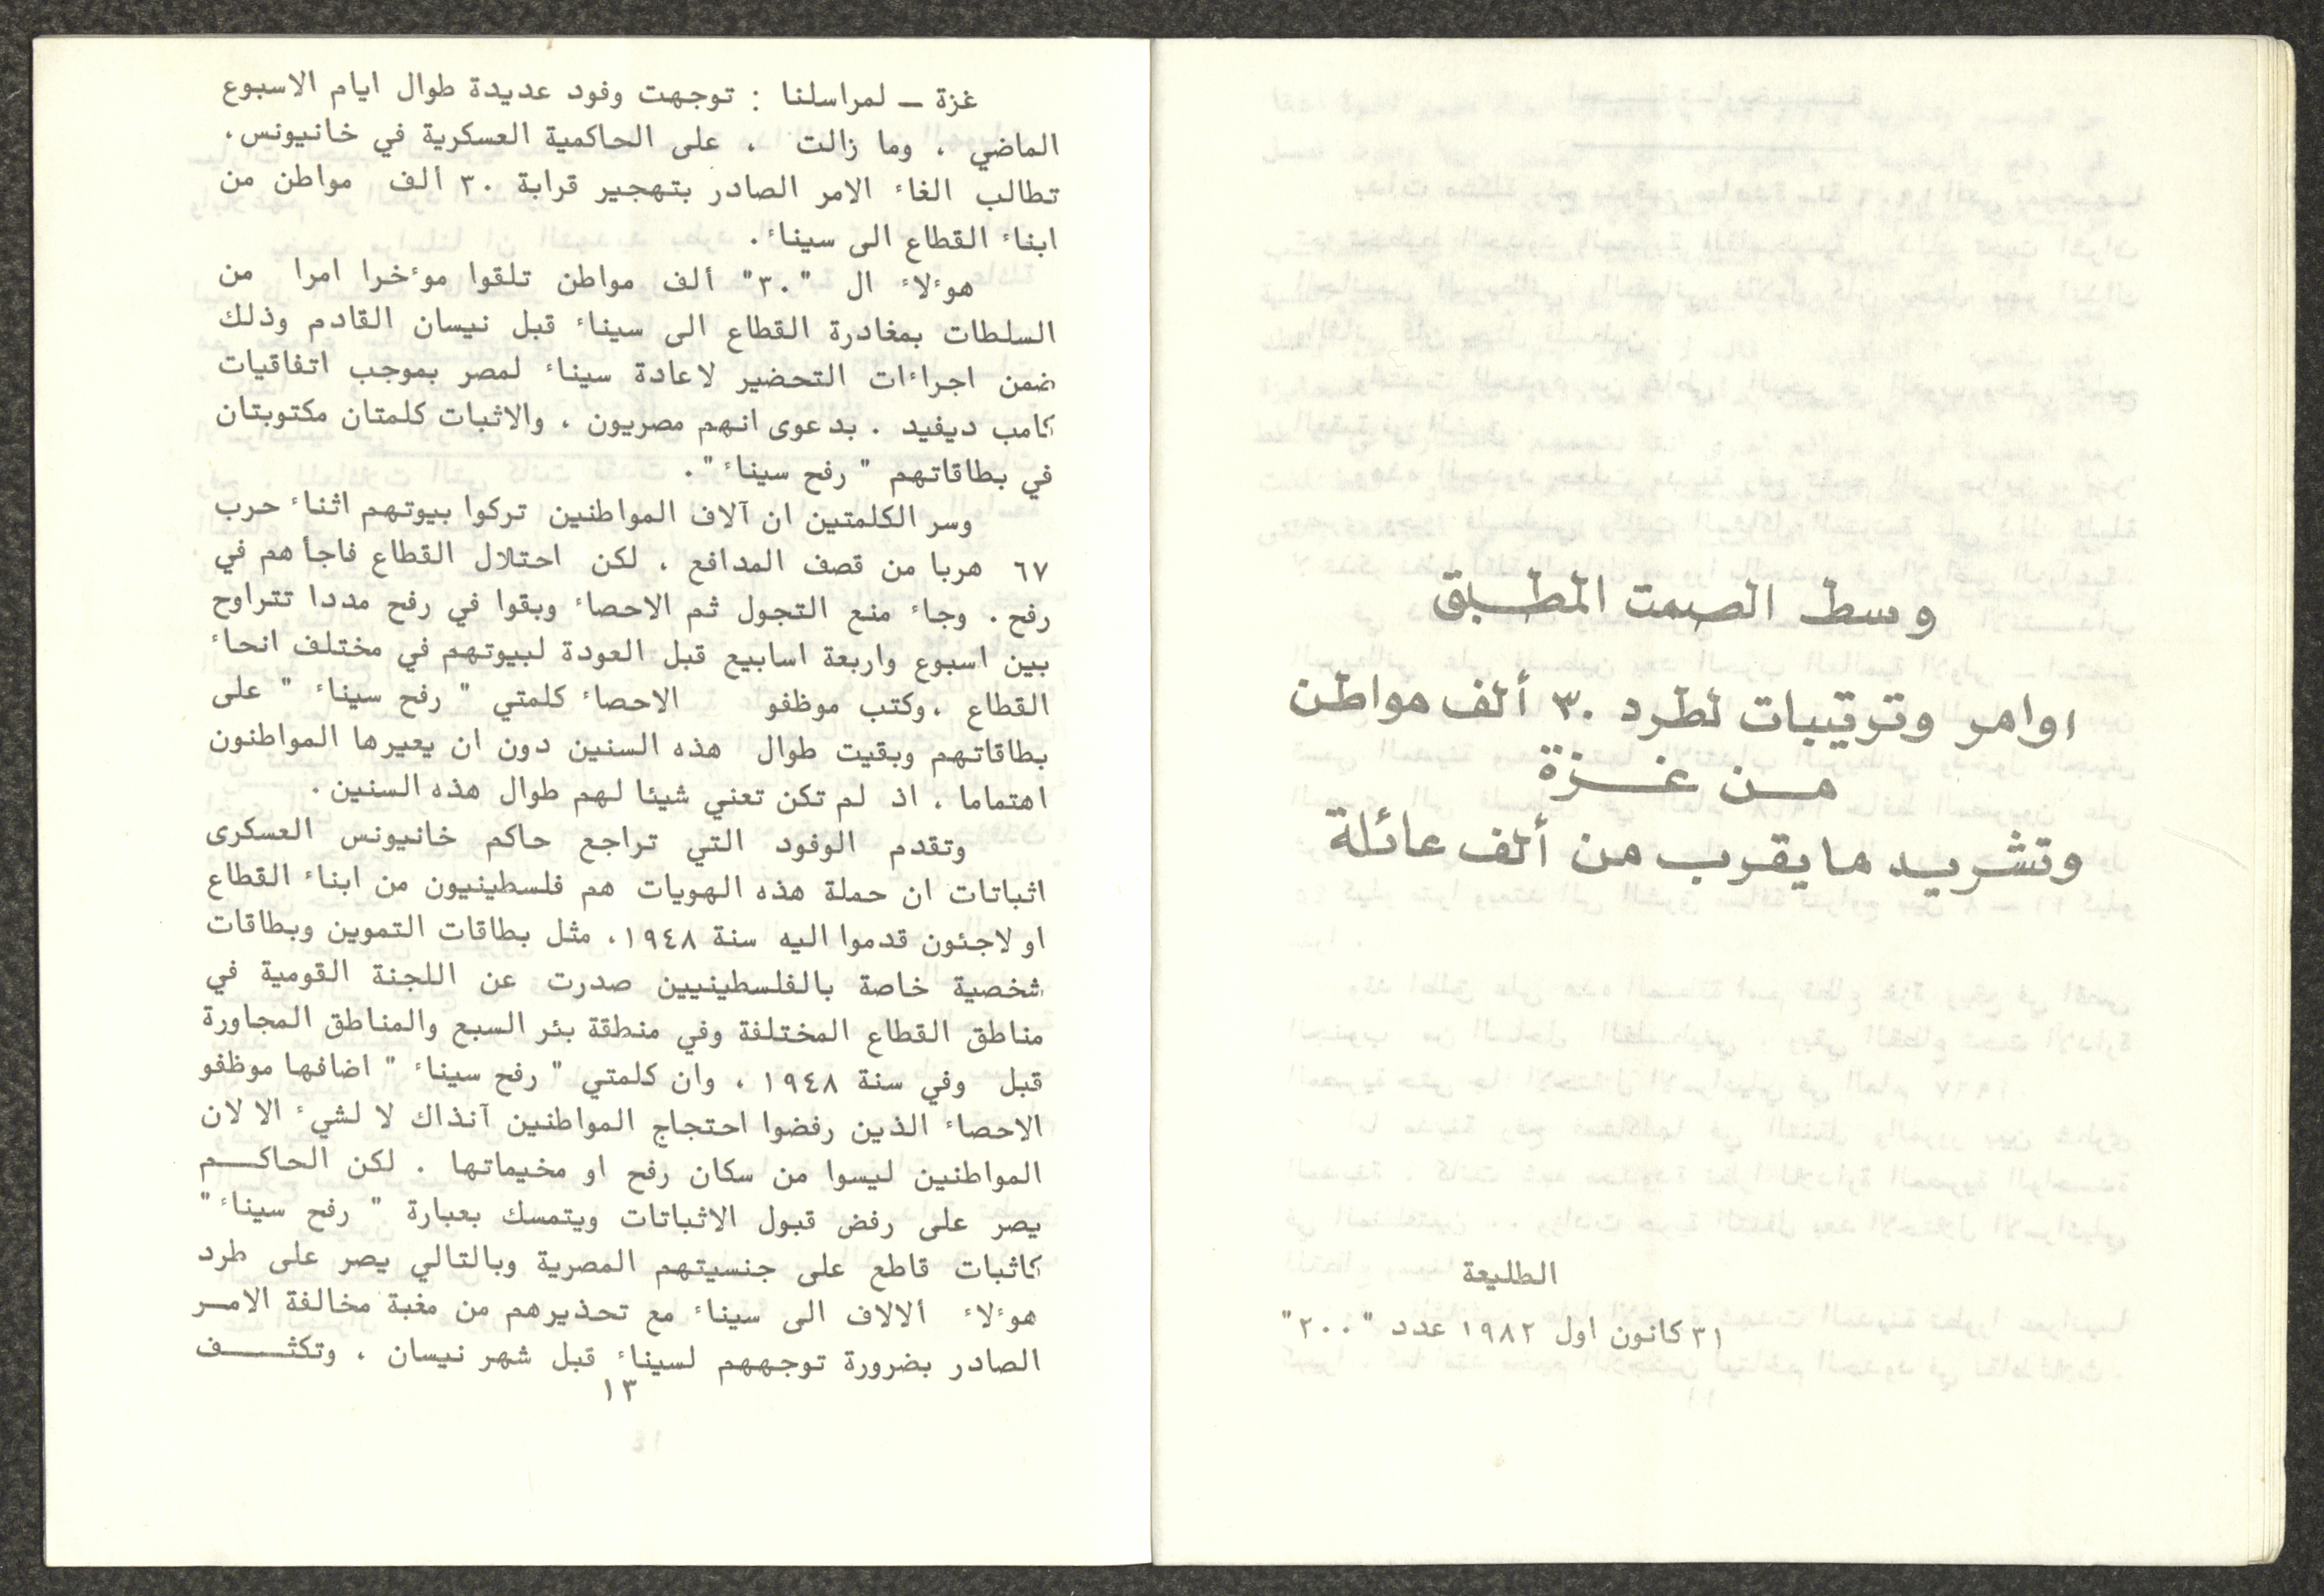 وسط الصمت المطبق
اوامر وترتيبات لطرد ٣٠ ألف مواطن
من غزة
وتشريد ما يقرب من ألف عائلة
الطليعة
٣١ كانون اول ١٩٨٢ عدد "٢٠٠"
غزة ــ لمراسلنا : توجهت وفود عديدة طوال ايام الاسبوع
الماضي ، وما زالت ، على الحاكمية العسكرية في خانيونس،
تطالب الغاء الامر الصادر بتهجير قرابة ٣٠ ألف مواطن من
ابناء القطاع الى سيناء.
هوءلاء ال "٣٠" ألف مواطن تلقوا موءخرا امرا من
السلطات بمغادرة القطاع الى سيناء قبل نيسان القادم وذلك
ضمن اجراءات التحضير لاعادة سيناء لمصر بموجب اتفاقيات
كامب ديفيد . بدعوى انهم مصريون ، والاثبات كلمتان مكتوبتان
في بطاقاتهم " رفح سيناء ".
وسر الكلمتين ان آلاف المواطنين تركوا بيوتهم اثناء حرب
٦٧ هربا من قصف المدافع ، لكن احتلال القطاع فاجأهم في
رفح . وجاء منع التجول ثم الاحصاء وبقوا في رفح مددا تتراوح
بين اسبوع واربعة اسابيع قبل العودة لبيوتهم في مختلف انحاء
القطاع ،وكتب موظفو الاحصاء كلمتي " رفح سيناء " على
بطاقاتهم وبقيت طوال هذه السنين دون ان يعيرها المواطنون
اهتماما ، اذ لم تكن تعني شيئا لهم طوال هذه السنين .
وتقدم الوفود التي تراجع حاكم خانيونس العسكرى
اثباتات ان حملة هذه الهويات هم فلسطينيون من ابناء القطاع
او لاجئون قدموا اليه سنة ١٩٤٨، مثل بطاقات التموين وبطاقات
شخصية خاصة بالفلسطينيين صدرت عن اللجنة القومية في
مناطق القطاع المختلفة وفي منطقة بئر السبع والمناطق المجاورة
قبل وفي سنة ١٩٤٨ ، وان كلمتي " رفح سيناء " اضافها موظفو
الاحصاء الذين رفضوا احتجاج المواطنين آنذاك لا لشيء الا لان
المواطنين ليسوا من سكان رفح او مخيماتها . لكن الحاكـــم
يصر على رفض قبول الاثباتات ويتمسك بعبارة " رفح سيناء "
كاثبات قاطع على جنسيتهم المصرية وبالتالي يصر على طرد
هوءلاء ألالاف الى سيناء مع تحذيرهم من مغبة مخالفة الامـــر
الصادر بضرورة توجههم لسيناء قبل شهر نيسان ، وتكثـــــف
١٣